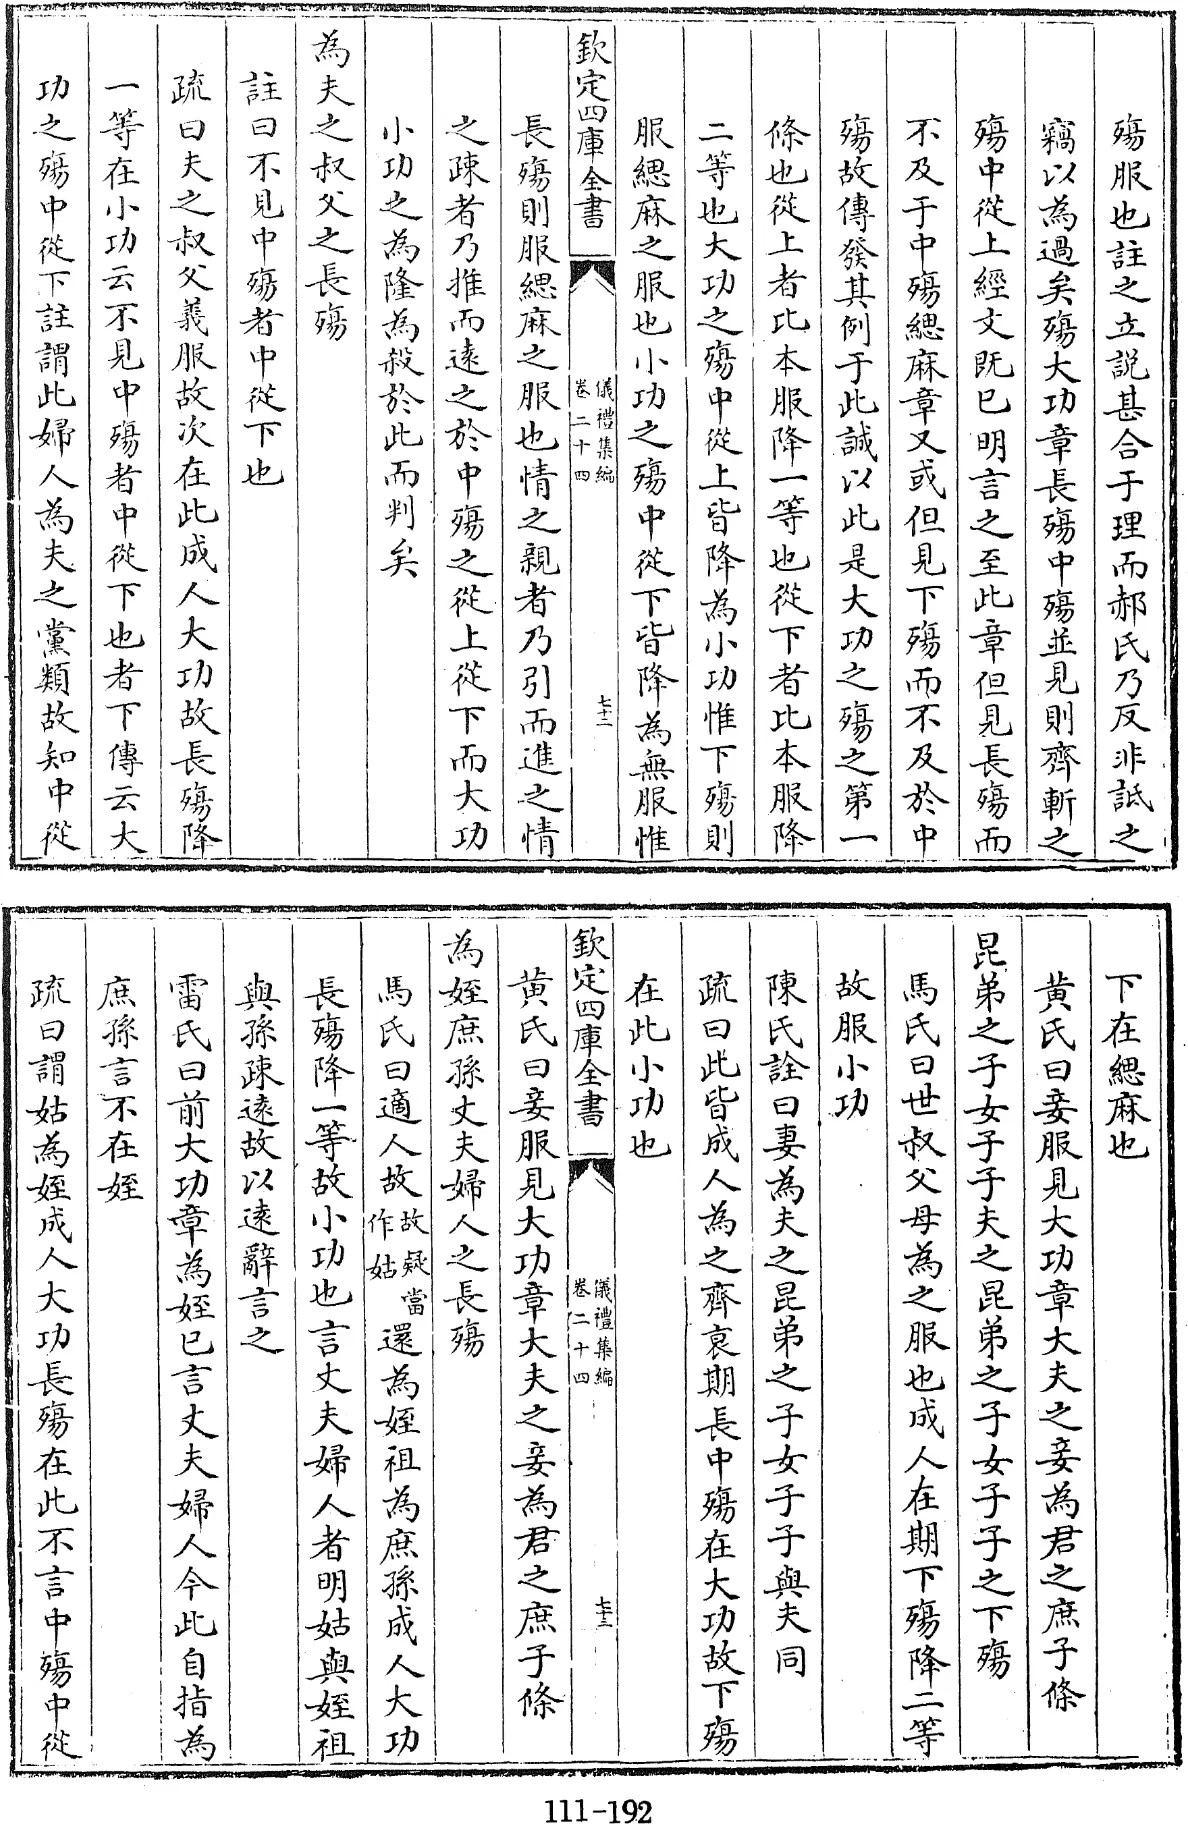 殤服也註之立説甚合于理而郝氏乃反非詆之
竊以為過矣殤大功章長殤中殤並見則齊斬之
殤中從上經文既已明言之至此章但見長殤而
不及于中殤緦麻章又或但見下殤而不及於中
殤故傳發其例于此誠以此是大功之殤之第一
條也從上者比本服降一等也從下者比本服降
二等也大功之殤中從上皆降為小功惟下殤則
服緦麻之服也小功之殤中從下皆降為無服惟
欽定四庫全書
儀禮集編
卷二十四
七十二
長殤則服緦麻之服也情之親者乃引而進之情
之疎者乃推而遠之於中殤之從上從下而大功
小功之為隆為殺於此而判矣
為夫之叔父之長殤
註曰不見中殤者中從下也
疏曰夫之叔父義服故次在此成人大功故長殤降
一等在小功云不見中殤者中從下也者下傳云大
功之殤中從下註謂此婦人為夫之黨類故知中從
下在緦麻也
黄氏曰妾服見大功章大夫之妾為君之庶子條
昆弟之子女子子夫之昆弟之子女子子之下殤
馬氏曰世叔父母為之服也成人在期下殤降二等
故服小功
陳氏詮曰妻為夫之昆弟之子女子子與夫同
疏曰此皆成人為之齊衰期長中殤在大功故下殤
在此小功也
欽定四庫全書
儀禮集編
卷二十四
七十三
黄氏曰妾服見大功章大夫之妾為君之庶子條
為姪庶孫丈夫婦人之長殤
馬氏曰適人故故疑當作姑還為姪祖為庶孫成人大功
長殤降一等故小功也言丈夫婦人者明姑與姪祖
與孫疎遠故以遠辭言之
雷氏曰前大功章為姪已言丈夫婦人今此自指為
庶孫言不在姪
疏曰謂姑為姪成人大功長殤在此不言中殤中從
111-192